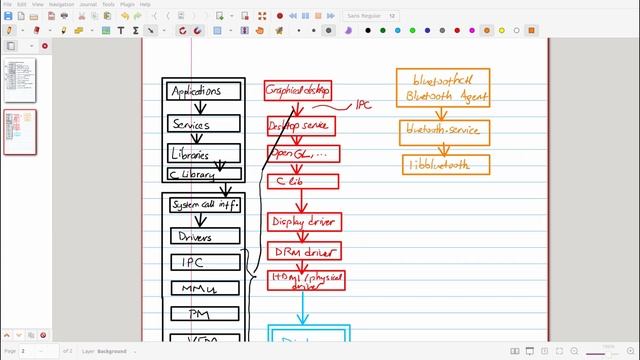 File Edit View Navigation Journal Tools Plugin Help
Sans Regular 12
Applications
Services
Libraries
C Library
System call intf.
Drivers
IPC
MMU
PM
VFM
Graphical desktop
IPC
Desktop service
OpenGL, ...
C lib
Display driver
DRM driver
HDMI/physical
driver
bluetoothctl
Bluetooth Agent
bluetooth.service
libbluetooth
Page 2 of 2 Layer Background